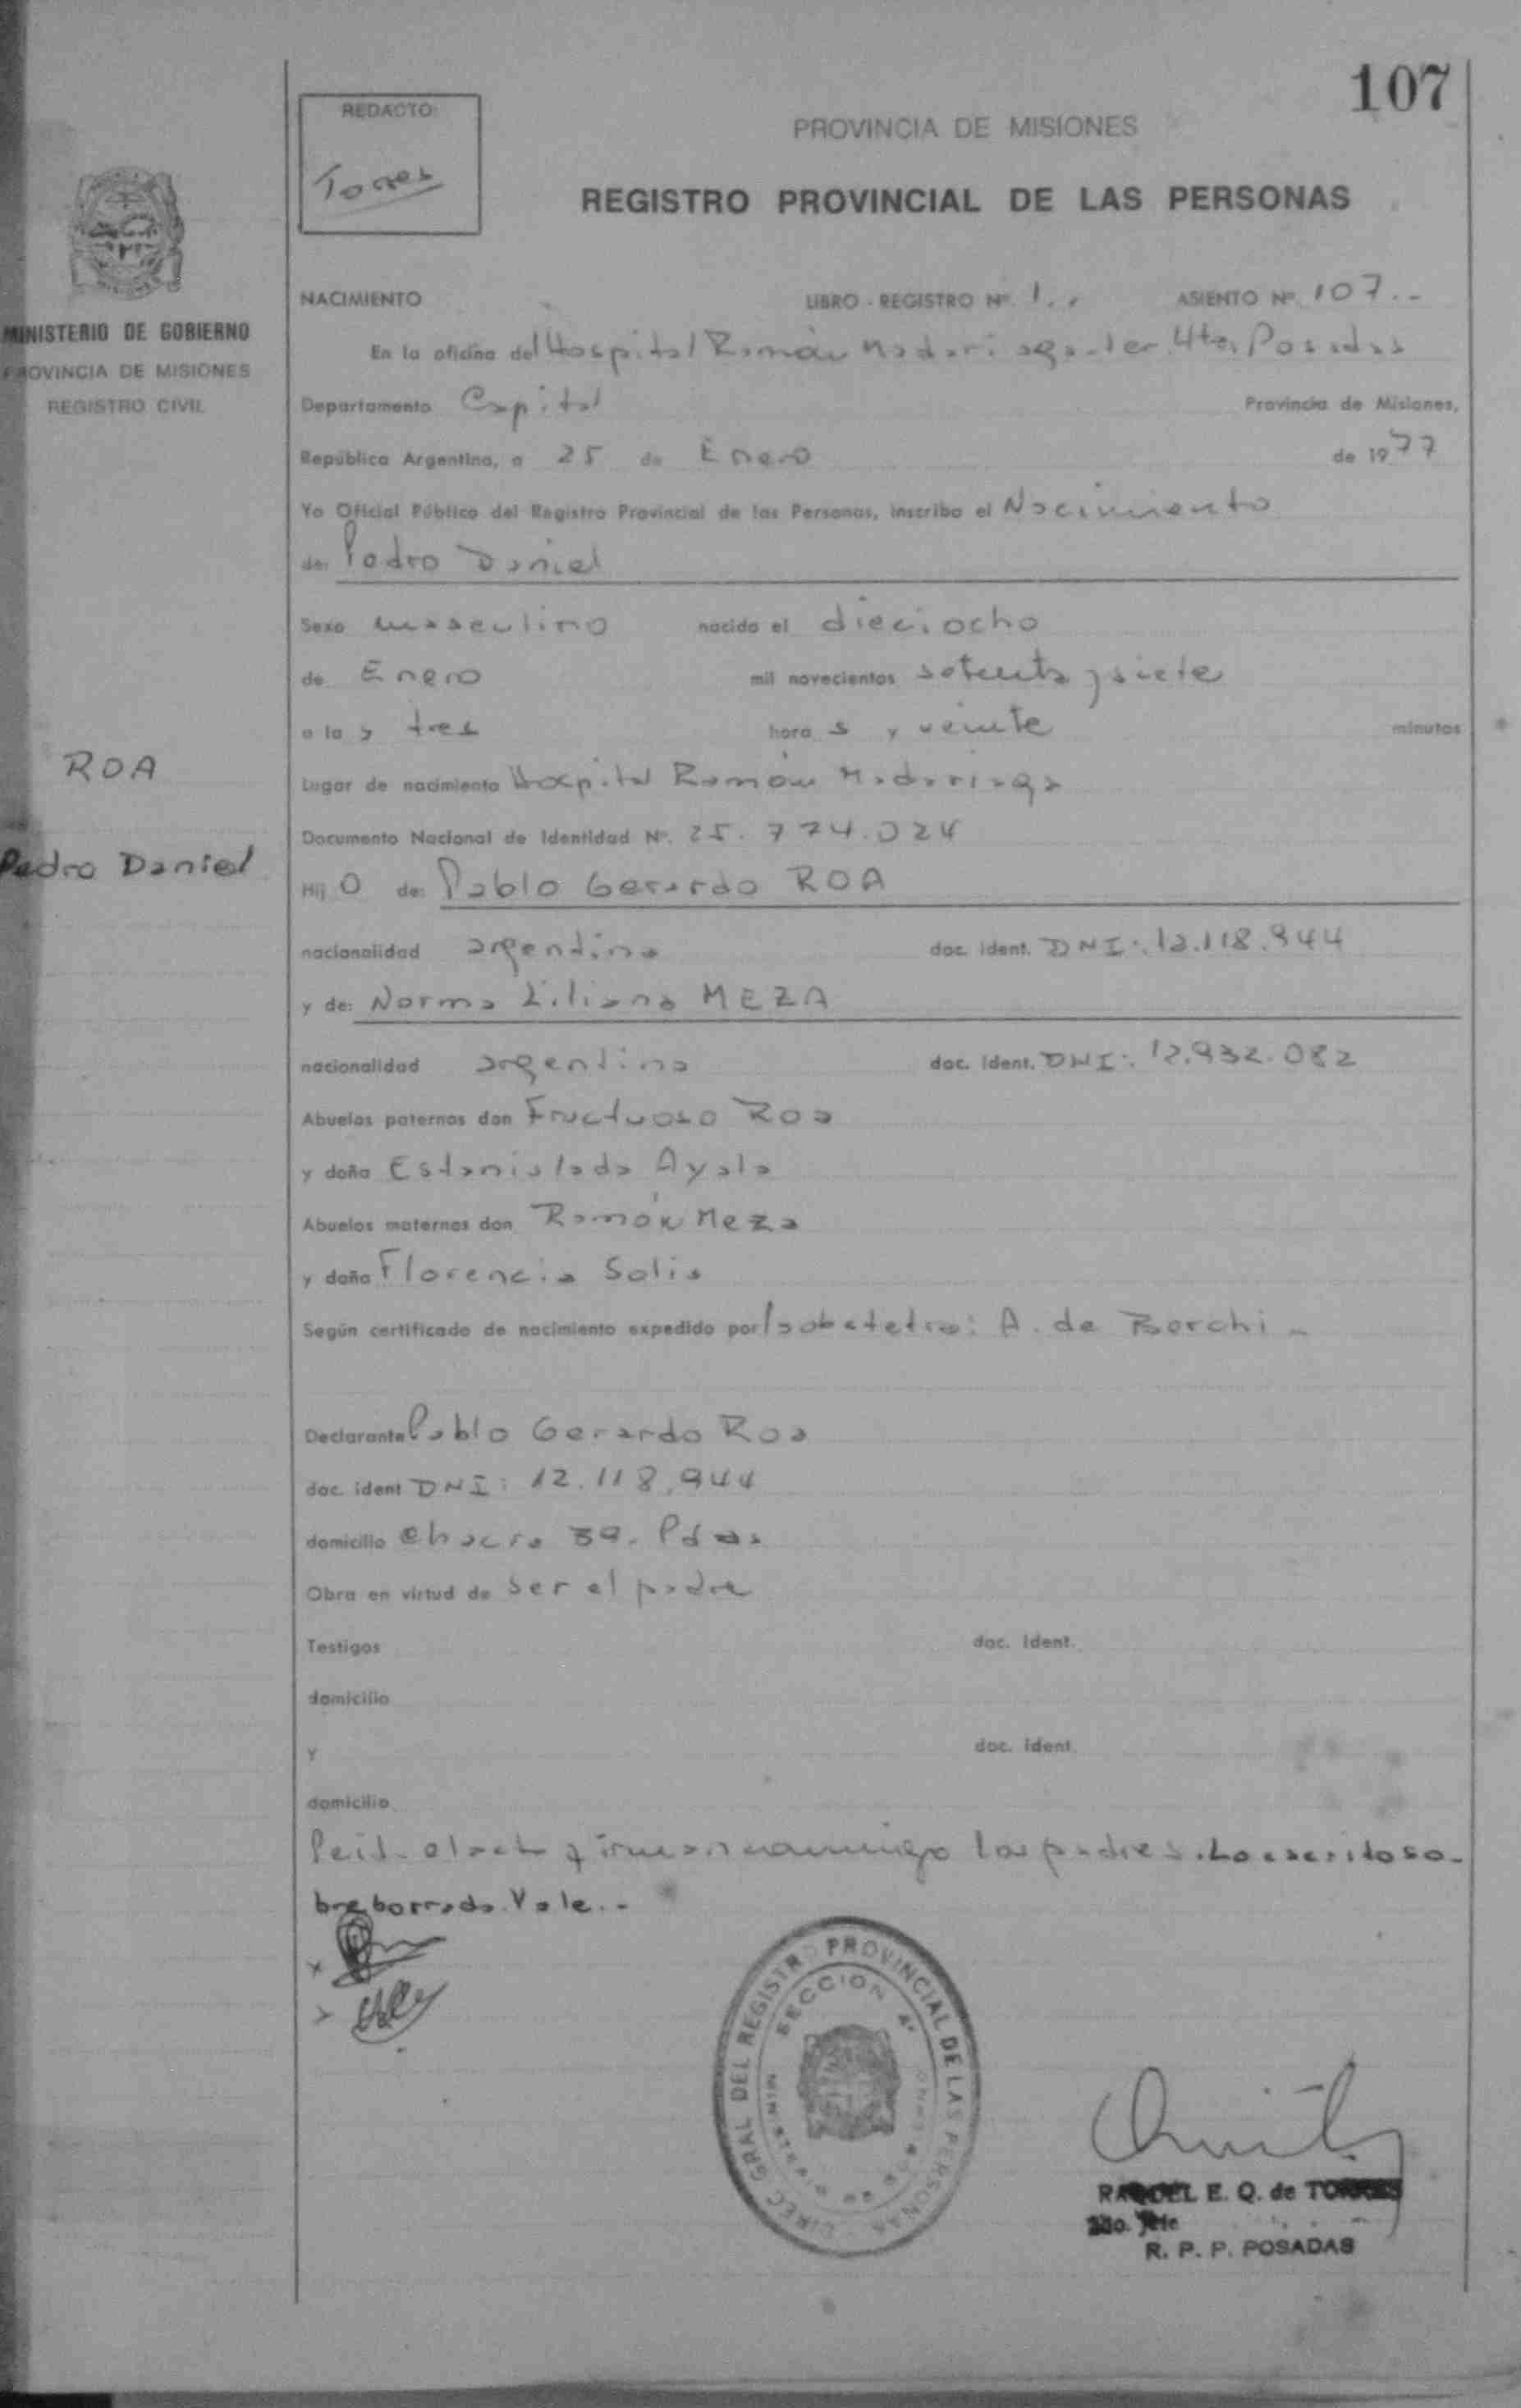 107
REDACTO:
Torres
PROVINCIA DE MISIONES
REGISTRO PROVINCIAL DE LAS PERSONAS
MINISTERIO DE GOBIERNO
PROVINCIA DE MISIONES
REGISTRO CIVIL
NACIMIENTO LIBRO - REGISTRO Nº 1.. ASIENTO Nº 107.-
En la oficina del Hospital Ramón Madariaga Posadas
Departamento Capital Provincia de Misiones,
República Argentina, a 25 de Enero de 1977
Yo Oficial Público del Registro Provincial de las Personas, inscribo el Nacimiento
de: Pedro Daniel
Sexo masculino nacido el dieciocho
de Enero mil novecientos setenta y siete
a la s tres hora s y veinte minutos
ROA
Lugar de nacimiento Hospital Ramón Madariaga
Documento Nacional de Identidad Nº. 25.774.024
Pedro Daniel
Hij o de: Pablo Gerardo ROA
nacionalidad argentina doc. ident. DNI: 12.118.944
y de: Norma Liliana MEZA
nacionalidad argentina doc. ident. DNI: 12.932.082
Abuelos paternos don Fructuoso Roa
y doña Estanislada Ayala
Abuelos maternos don Ramón Meza
y doña Florencia Solis
Según certificado de nacimiento expedido por A. de Borchi -
Declarante Pablo Gerardo Roa
doc. ident DNI: 12.118.944
domicilio Chacra 39. Pdas.
Obra en virtud de ser el padre
Testigos doc. ident.
domicilio
y doc. ident.
domicilio
Leida el acta firman conmigo los padres. Lo escrito so-
bre borrado. Vale.-
DIREC GRAL DEL REGISTRO PROVINCIAL DE LAS PERSONAS
SECCION 4ª
MINISTERIO DE GOBIERNO
RAQUEL E. Q. de TORRES
2do. Jefe
R. P. P. POSADAS